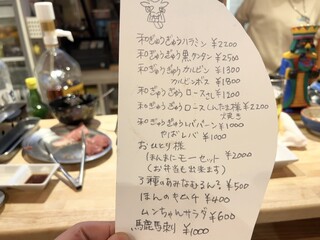 和ぎゅうぎゅうハラミン ¥2200
和ぎゅうぎゅう黒タンタン ¥2500
和ぎゅうぎゅう カルビン ¥1300
カルビンボス ¥1800
和ぎゅうぎゅう ロースさし ¥1200
和ぎゅうぎゅう ロースしんたま様 ¥2200
焼き
和ぎゅうぎゅう レバーン ¥1000
やばレバ ¥1000
おひとり様
ほんまにモーセット ¥2000
(お弁当も出来ます)
3種のあみなむるんるん ¥500
ほんのキムチ ¥400
ムンちゃんサラダ ¥600
馬鹿馬刺 ¥1000